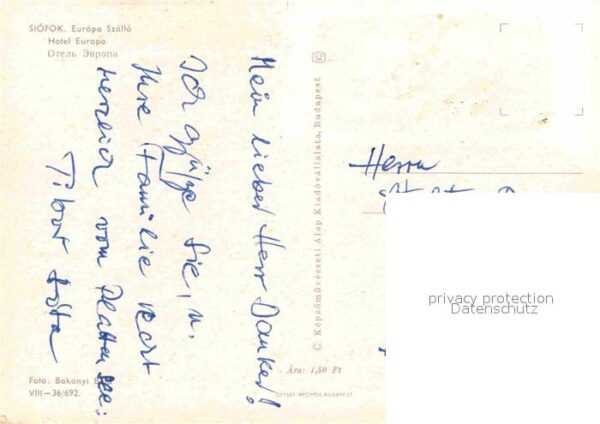 SIÓFOK. Európa Szálló
Hotel Europa
Отель Эвропа
Mein lieber Herr Danker!
Ich grüße Sie, u.
Ihre Familie recht
herzlich vom Plattensee:
Tibor
Foto: Bakonyi
VIII—36/692.
© Képzőművészeti Alap Kiadóvállalata, Budapest
Ára: 1,50 Ft
OFFSET-NYOMDA BUDAPEST
Herrn
privacy protection
Datenschutz